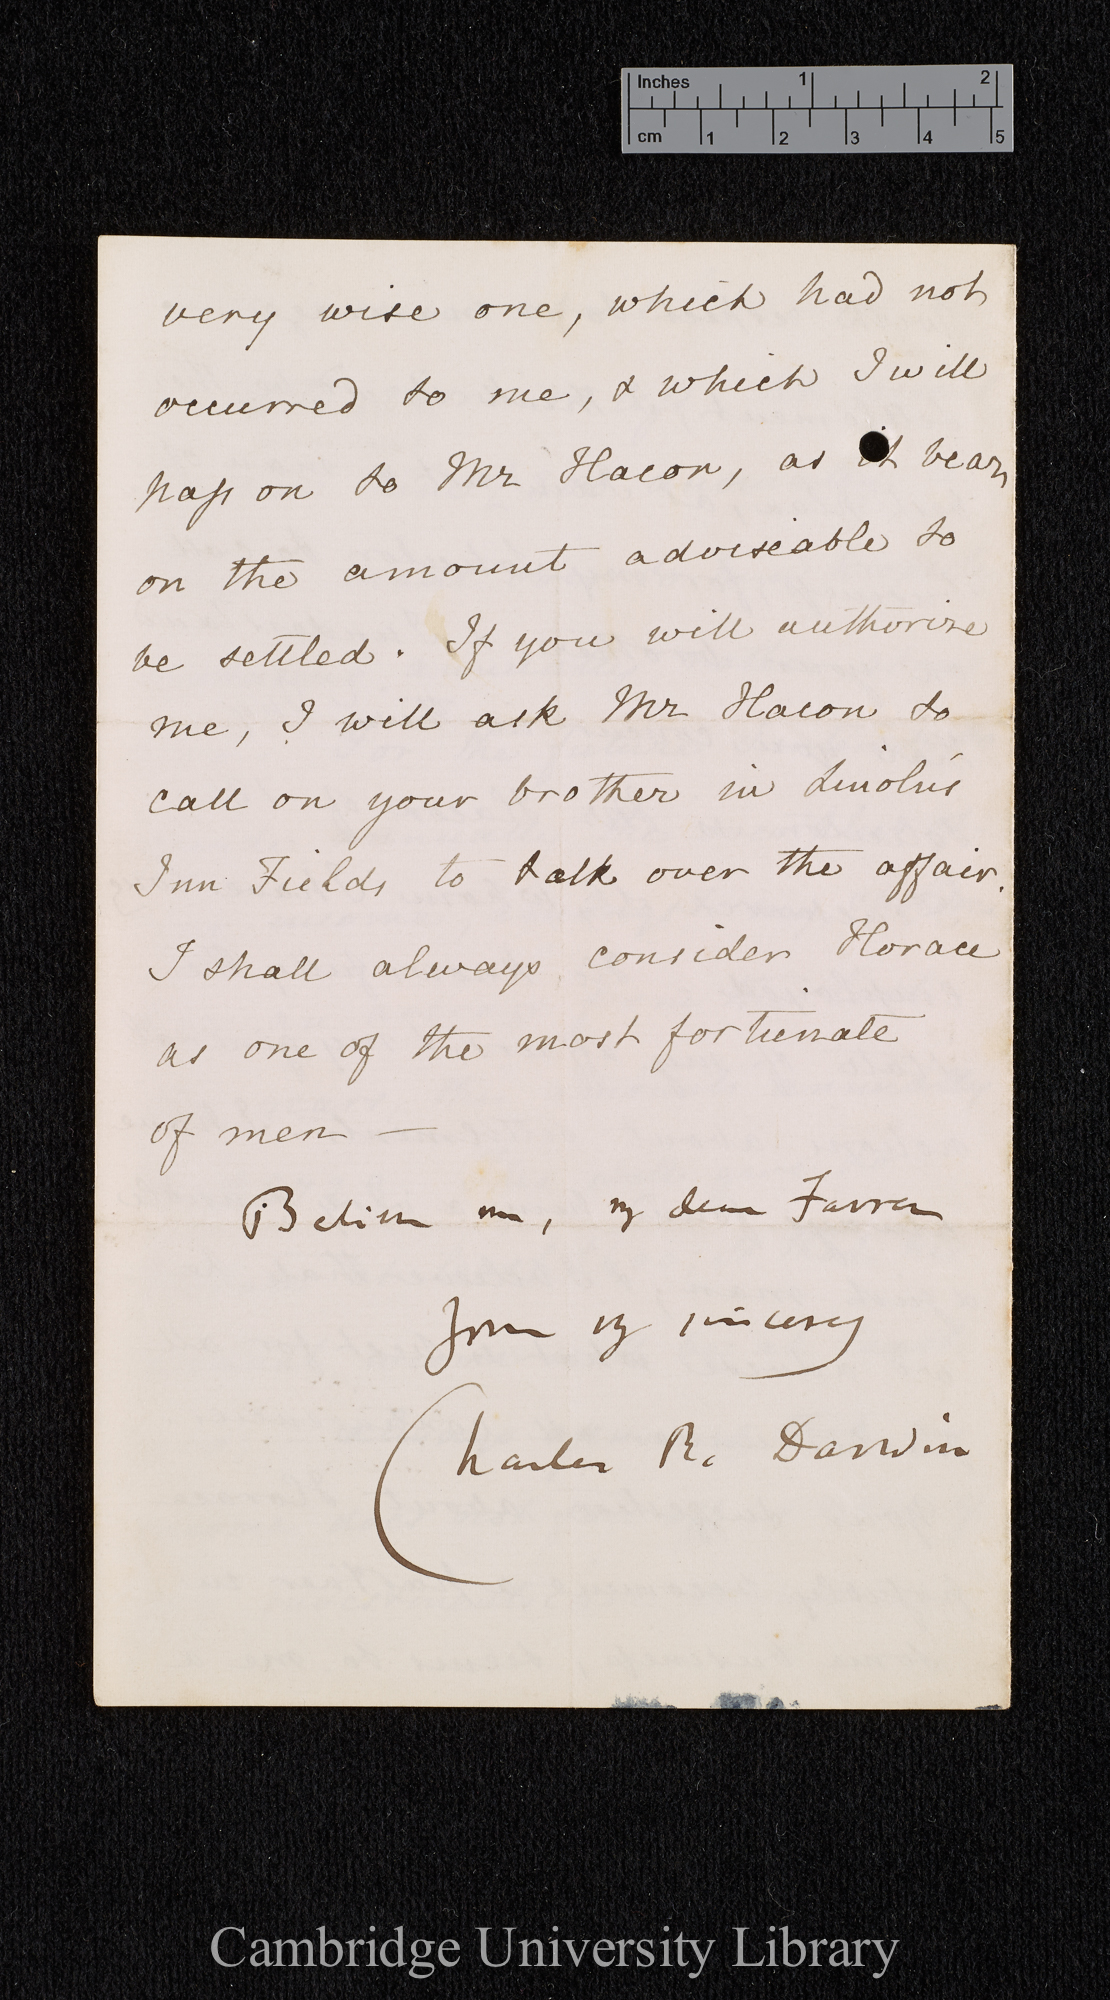 Inches 1 2
cm 1 2 3 4 5
very wise one, which had not
occurred to me, & which I will
pass on to Mr Hacon, as it bears
on the amount adviseable to
be settled. If you will authorize
me, I will ask Mr Hacon to
call on your brother in Lincoln's
Inn Fields to talk over the affair.
I shall always consider Horace
as one of the most fortunate
of men —
Believe me, my dear Farrer
Yours very sincerely
Charles R. Darwin
Cambridge University Library